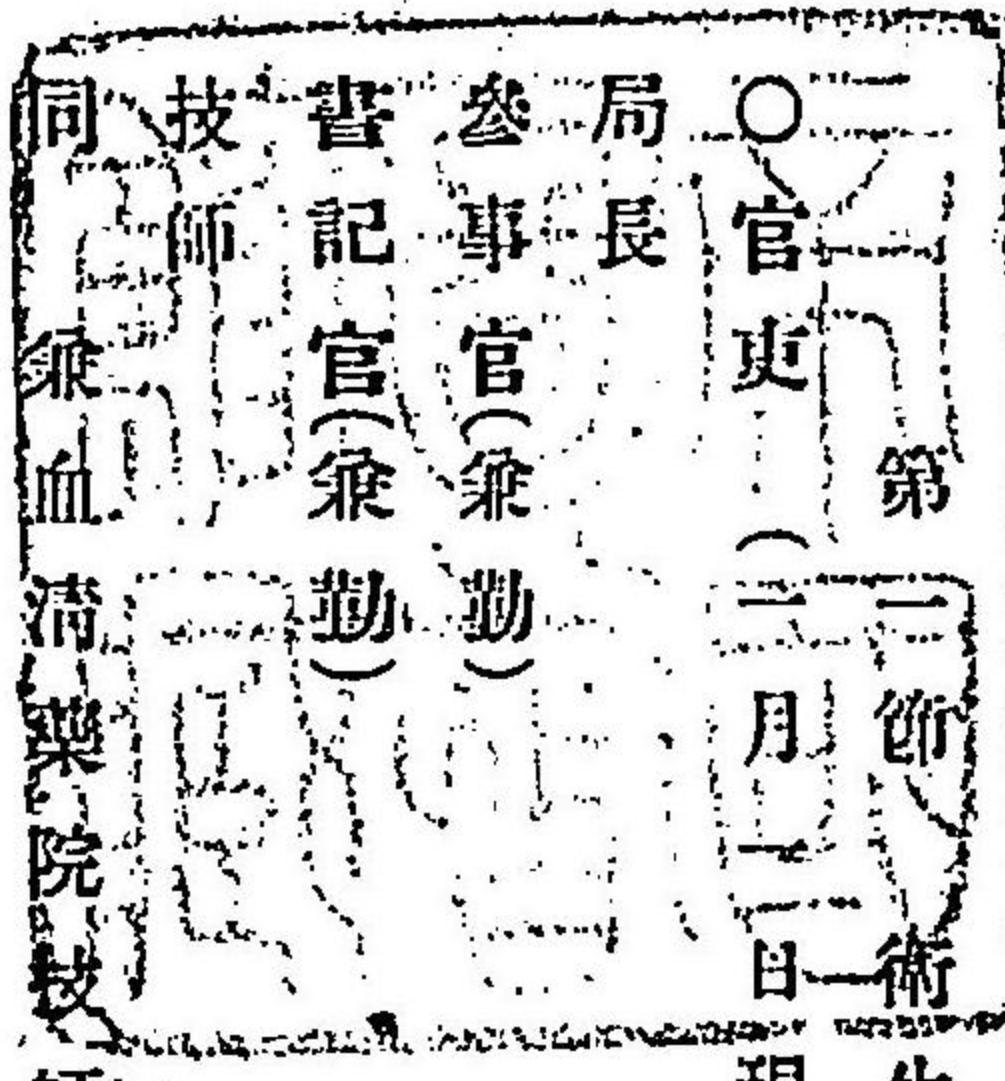 第一節 衛
○官吏 (一月一日現
局長
參事官(兼勤)
書記官(兼勤)
技師
同 兼血淸藥院技